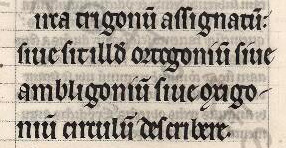 ura trigonū assignatū:
siue sit illđ ortogoniū siue
ambligoniū siue oxigo-
niū circulū describere.